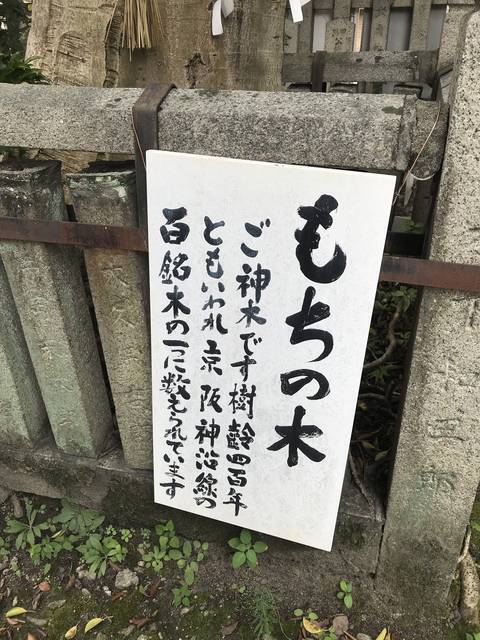 もちの木
ご神木です樹齢四百年
ともいわれ京阪神沿線の
百銘木の一つに数えられています